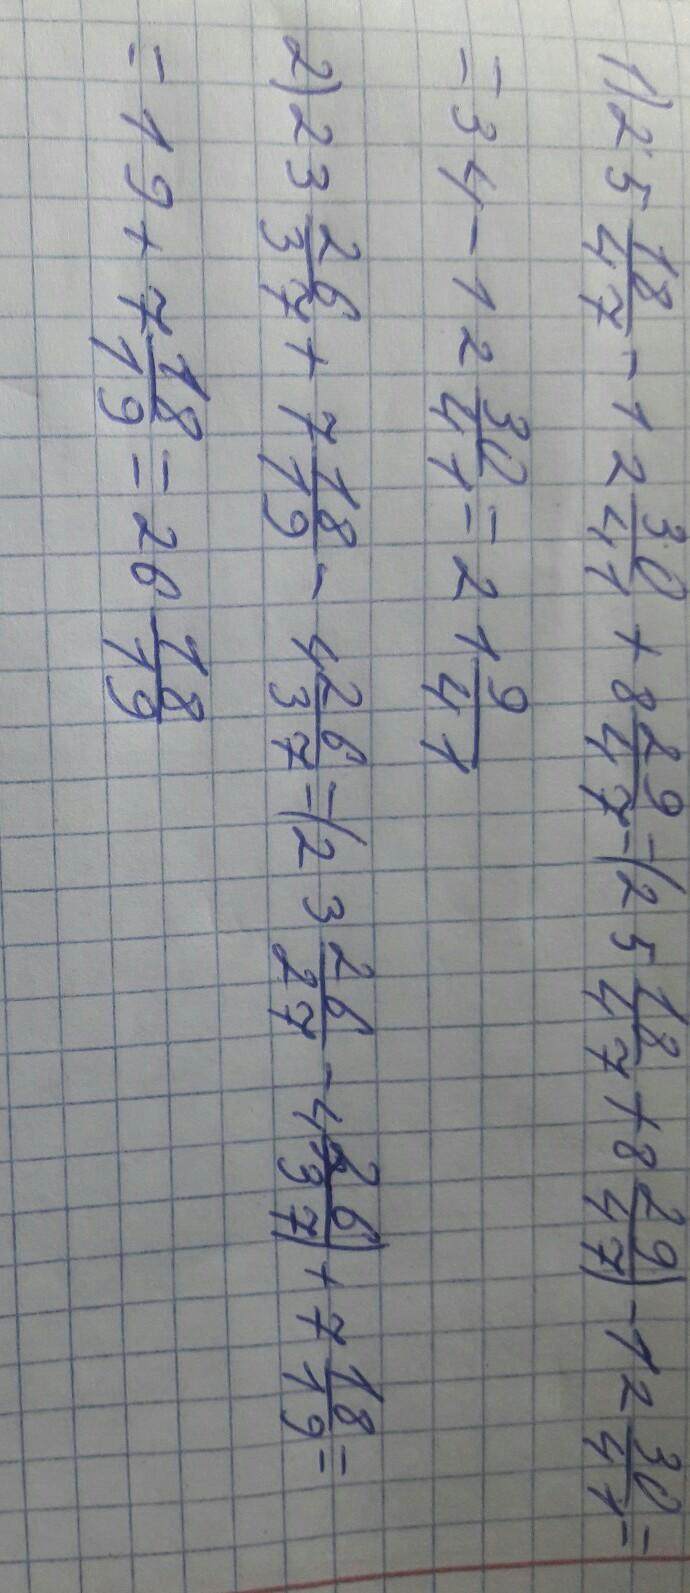 1) 25 18/47 - 12 30/41 + 8 29/47 = (25 18/47 + 8 29/47) - 12 30/41 =
= 34 - 12 30/41 = 21 9/41
2) 23 26/37 + 7 18/19 - 4 26/37 = (23 26/27 - 4 26/37) + 7 18/19 =
= 19 + 7 18/19 = 26 18/19